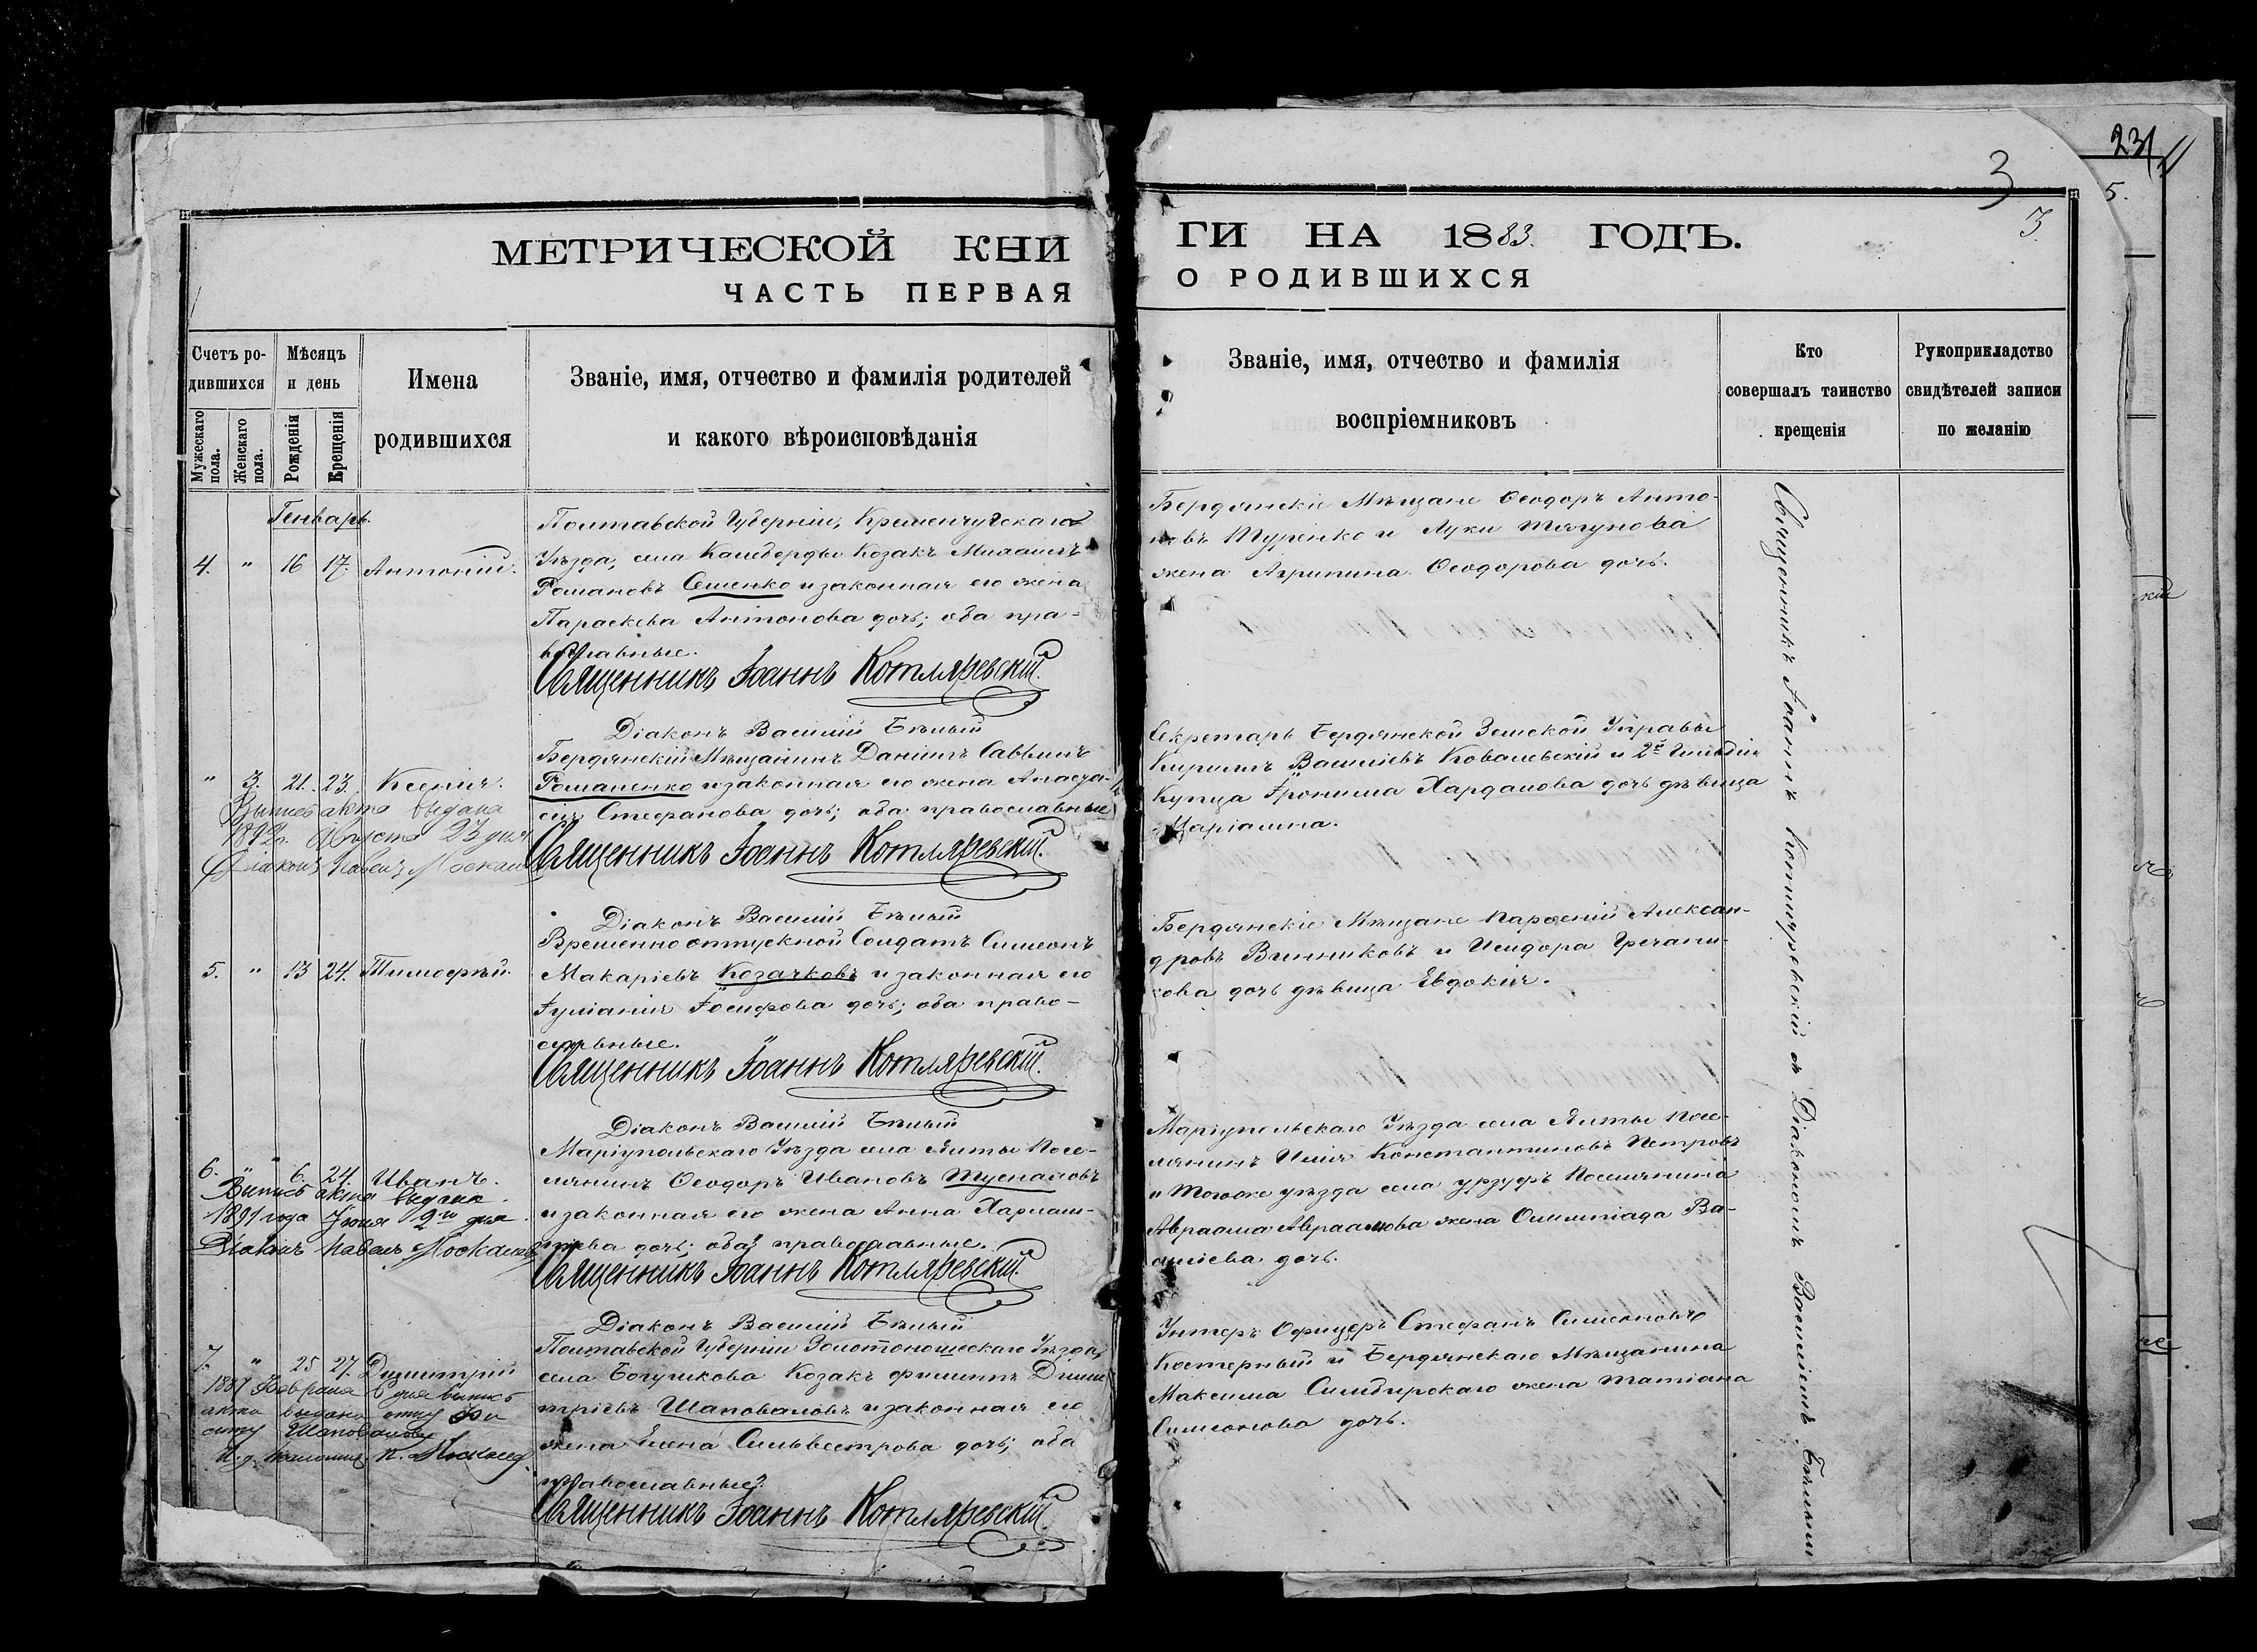 231
5.
3
3.
МЕТРИЧЕСКОЙ КНИ
ЧАСТЬ ПЕРВАЯ
ГИ НА 1883. ГОДЪ.
О РОДИВШИХСЯ
Счетъ ро-
дившихся
Мужескаго пола.
Женскаго пола.
Мѣсяцъ
и день
Рожденія
Крещенія
Имена
родившихся
Званіе, имя, отчество и фамилія родителей
и какого вѣроисповѣданія
Званіе, имя, отчество и фамилія
воспріемниковъ
Кто
совершалъ таинство
крещенія
Рукоприкладство
свидѣтелей записи
по желанію
Генварь.
4. " 16 17. Антоній.
Полтавской Губерніи, Кременчугскаго
Уѣзда, села Камбурды Козакъ Михаилъ
Романовъ Семенко и законная его жена
Параскева Антонова дочь; оба пра-
вославные.
Священникъ Іоаннъ Котляревскій.
Діаконъ Василій Бѣлый
Бердянскіе Мѣщане Ѳеодоръ Анто-
новъ Туренко и Луки Тягунова
жена Агрипина Ѳеодорова дочь.
" 3. 21. 23. Ксенія.
Выпись акта выдана
1892г. Августа 23 дня
Діаконъ Павелъ
Бердянскій Мѣщанинъ Даніилъ Саввинъ
Романенко и законная его жена Анаста-
сія Стефанова дочь; оба православные
Священникъ Іоаннъ Котляревскій.
Діаконъ Василій Бѣлый
Секретарь Бердянской Земской Управы
Кириллъ Васильевъ Ковалевскій и 2й Гильдіи
Купца Іронима Харданова дочь дѣвица
Маріамна.
5. " 13 24. Тимоѳей.
Временно отпускной Солдатъ Симеонъ
Макаріевъ Козачковъ и законная его
Іуліанія Іосифова дочь; оба право-
славные.
Священникъ Іоаннъ Котляревскій.
Діаконъ Василій Бѣлый
Бердянскіе Мѣщане Парѳеній Алексан-
дровъ Винниковъ и Исидора Гречани-
кова дочь дѣвица Евдокія.
6. " 6. 24. Иванъ.
Выпись акта выдана
1891 года Іюня 9го дня
Діаконъ Павелъ
Маріупольскаго Уѣзда села Ялты Посе-
лянинъ Ѳеодоръ Ивановъ Туспановъ
и законная его жена Анна Харлам-
піева дочь; оба православные.
Священникъ Іоаннъ Котляревскій.
Діаконъ Василій Бѣлый
Маріупольскаго Уѣзда села Ялты Посе-
лянинъ Илія Константиновъ Петровъ
и Тогоже уѣзда села Урзуфъ Поселянина
Авраама Авраамова жена Олимпіада Ва-
силіева дочь.
7. " 25 27. Димитрій
1887 Февраля 6 дня выпись
акта выдана отцу Фи
липу Шаповалову
Полтавской Губерніи Золотоношескаго Уѣзда,
села Богушкова Козакъ Филиппъ Дими
тріевъ Шаповаловъ и законная его
жена Елена Сильвестрова дочь; оба
православные.
Священникъ Іоаннъ Котляревскій.
Унтеръ Офицеръ Стефанъ Симеоновъ
Костерный и Бердянскаго Мѣщанина
Максима Симбирскаго жена Татіана
Симеонова дочь.
Священникъ Іоаннъ Котляревскій съ Діакономъ Василіемъ Бѣлымъ